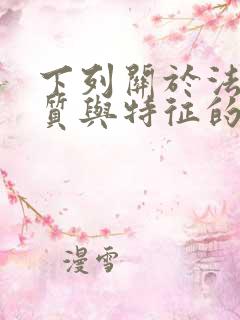 下列關於法
質與特征的
漫雪